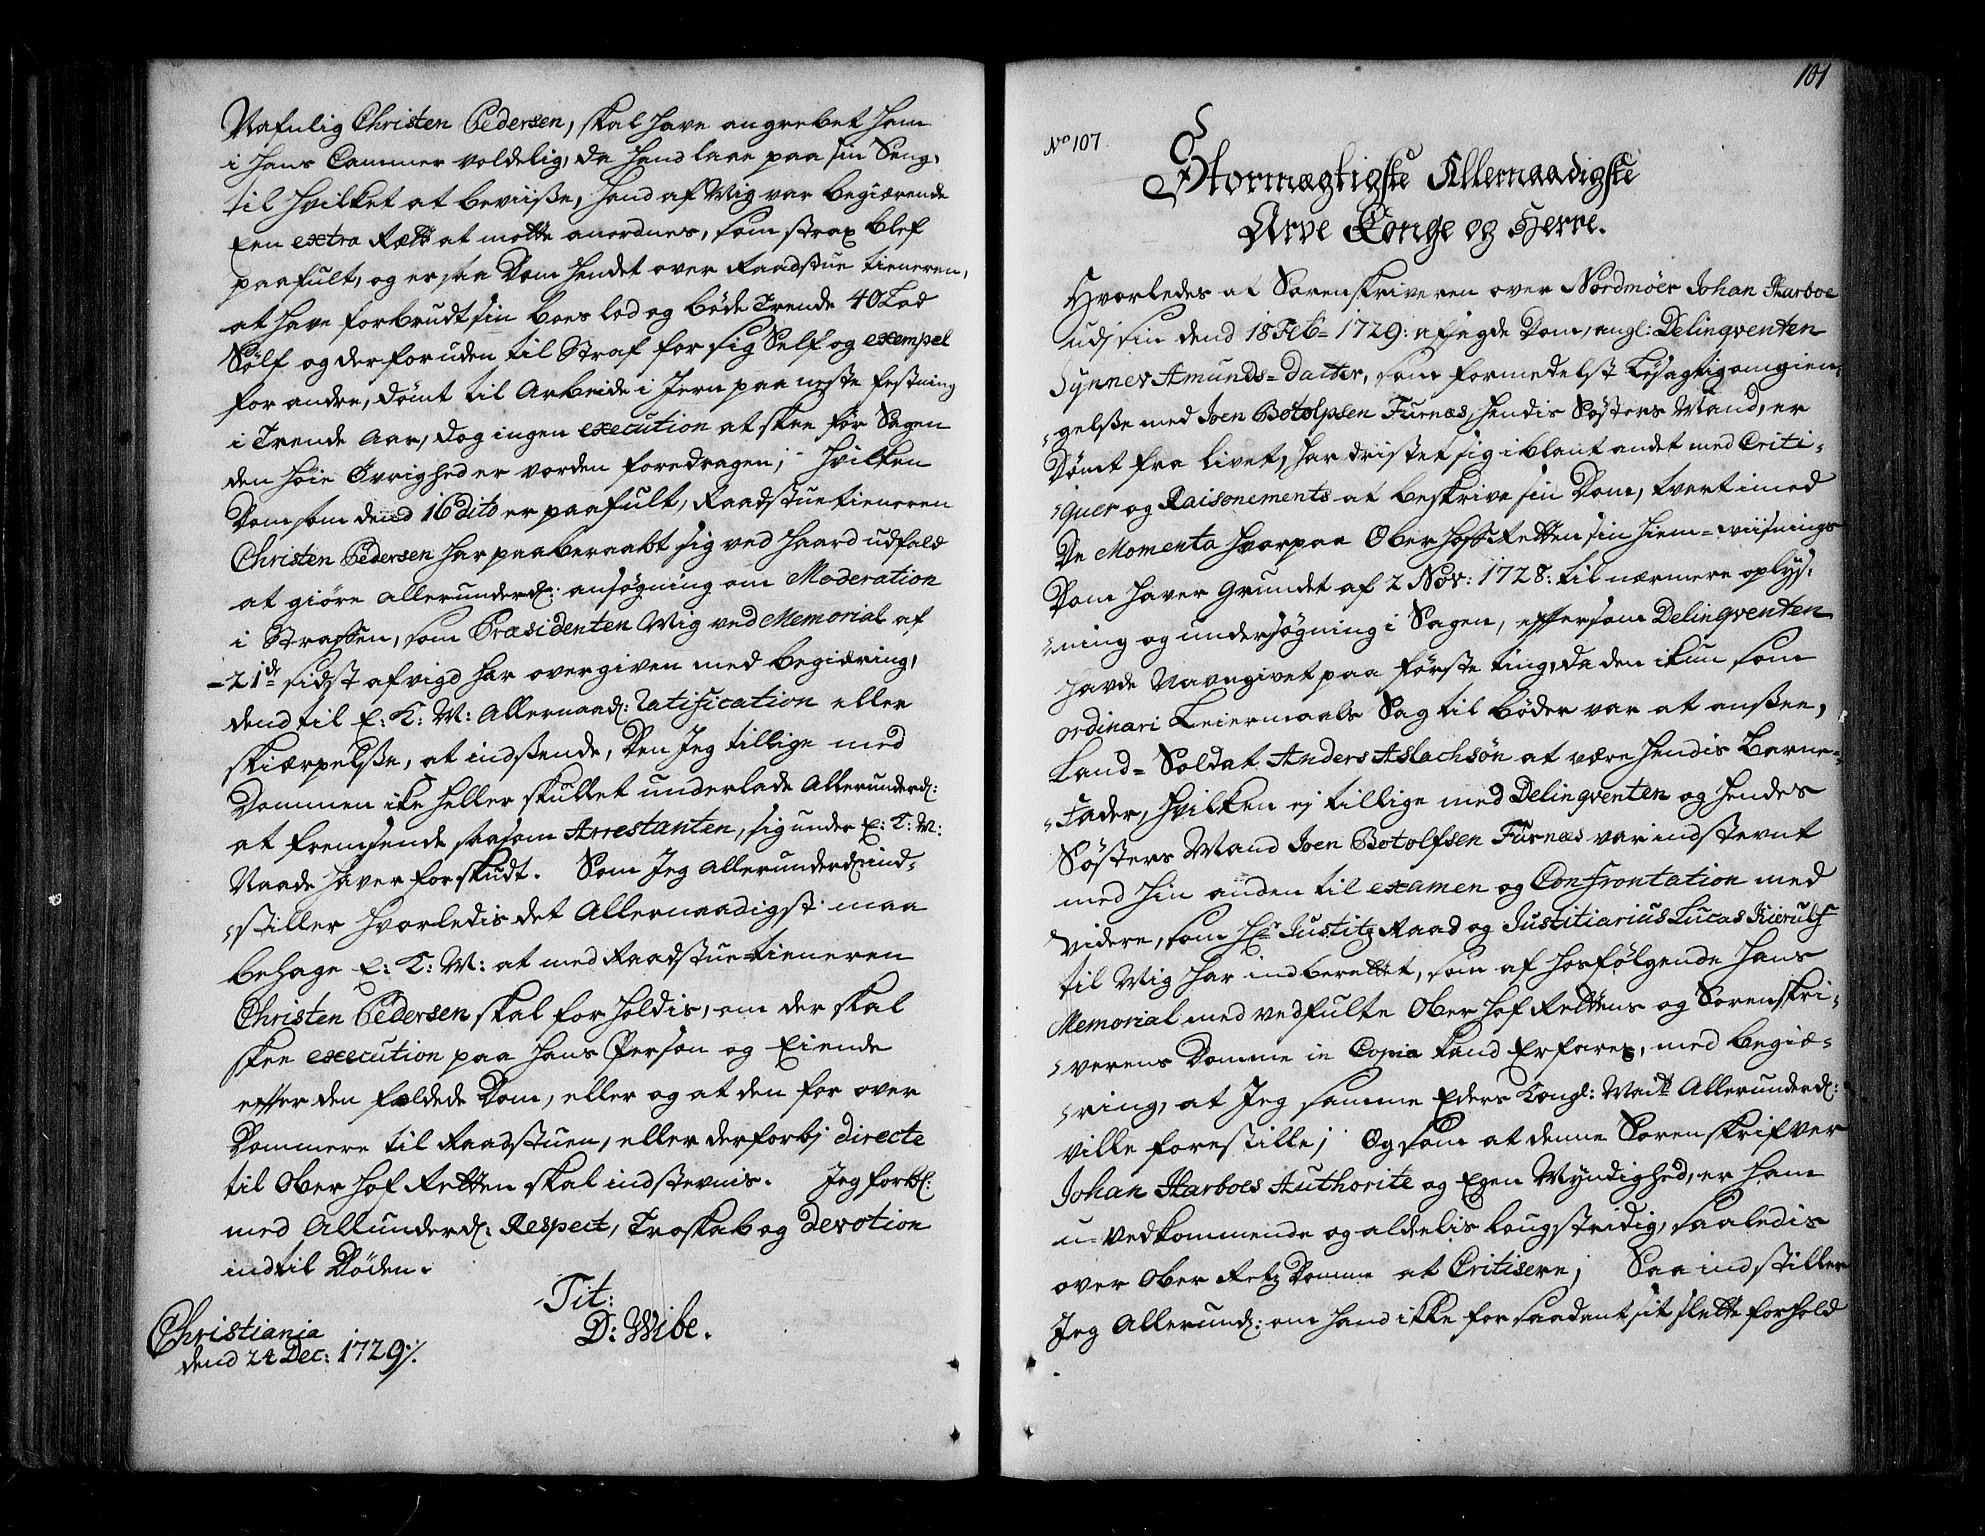 Nafnlig Christen Pedersen, skal have angrebet ham
i hans Cammer voldelig, da hand laae paa sin Seng,
til hvilket at beviisse, hand af Mig var begiærende
Een extra Rætt at motte anordnes, som strax blef
paafult, og er saa Dom hendet over Raadstue tieneren,
at have forbrudt sin boes lod og böde Trende 40 Lod
Sölf og derforuden til Straf for sig Self og exempel
for andre, dömt til Arbeide i Jern paa neste festning
i Trende Aar, dog ingen execution at skee för Sagen
den höie Övrighed er vorden foredragen; hvilken
Dom som dend 16 dito er paafult, Raadstuetieneren
Christen Pedersen har paaberaabt sig ved haard udfald
at giöre allerunderd: ansögning om Moderation
i Straffen, som Præsidenten Mig ved Memorial af
21de sidst afvigd har overgiven med begiæring,
dend til E: K: M: Allernaad: ratification eller
skiærpelsse, at indssende, Den Jeg tillige med
Dommen ike heller skullet underlade Allerunderd:
at fremsende saasom Arrestanten, sig under E: K: M:
Naade haver forskudt. Som Jeg Allerunderd: ind-
stiller hvorledis det Allernaadigst maa
behage E: K: M: at med Raadstuetieneren
Christen Pedersen skal forholdis, om der skal
skee execution paa hans Person og Eiende
effter den fældede Dom, eller og at den for over
Dommere til Raadstuen, eller derforbj directe
til Ober Hof Retten skal indstevnis. Jeg forbl:
med Allunderd: Respect, Troskab og devotion
indtil Döden.
Tit:
D: Wibe.
Christiania
dend 24 Dec: 1729 ./.
101
No 107
Stormægtigste Allernaadigste
Arve Konge og Herre.
Hvorledes at Sorenskriveren over Nordmöer Johan Harboe
udj sin dend 18 Feb= 1729: afsagde Dom, angl: Delinqventen
Synnev Amunds=datter, som formedelst Lösagtig omgien-
gelsse med Joen Botolpsen Furnæs, hendis Sösters Mand, er
Dömt fra livet, har dristet sig iblant andet med Criti-
quer og Raisonements at beskrive sin Dom, tvert imod
De Momenta hvorpaa Ober Hoff Retten sin hiem=viisnings
Dom haver Grundet af 2 Nov: 1728: til nærmere oplys-
ning og undersögning i Sagen, efftersom Delinqventen
havde Navngivet paa förste ting, da den ikun som
ordinari Leiermaals Sag til böder var at anssee,
Land=Soldat Anders Aslachsön at være hendis Barne-
Fader, hvilken ej tillige med Delinqventen og hendes
Sösters Mand Joen Botolfsen Furnæs var indstevnt
med hin anden til examen og Confrontation med
Videre, som Hr Justitz Raad og Justitiarius Lucas Kierulf
til Mig har indberettet, som af hosfölgende hans
Memorial med vedfulte Ober Hof Rettens og Sorenskri-
verens Domme in Copia kand Erfares, med begiæ-
ring, at Jeg samme Eders Kongl: Maitt Allerunderd:
ville forestille; Og som at denne Sorenskrifver
Johan Harboes Authorite og Egen Myndighed, er ham
u=vedkommende og aldelis lougstridig, saaledis
over Ober Retz Domme at Critisere; Saa indstiller
Jeg Allerund: om hand ikke for saadent sit slette forhold